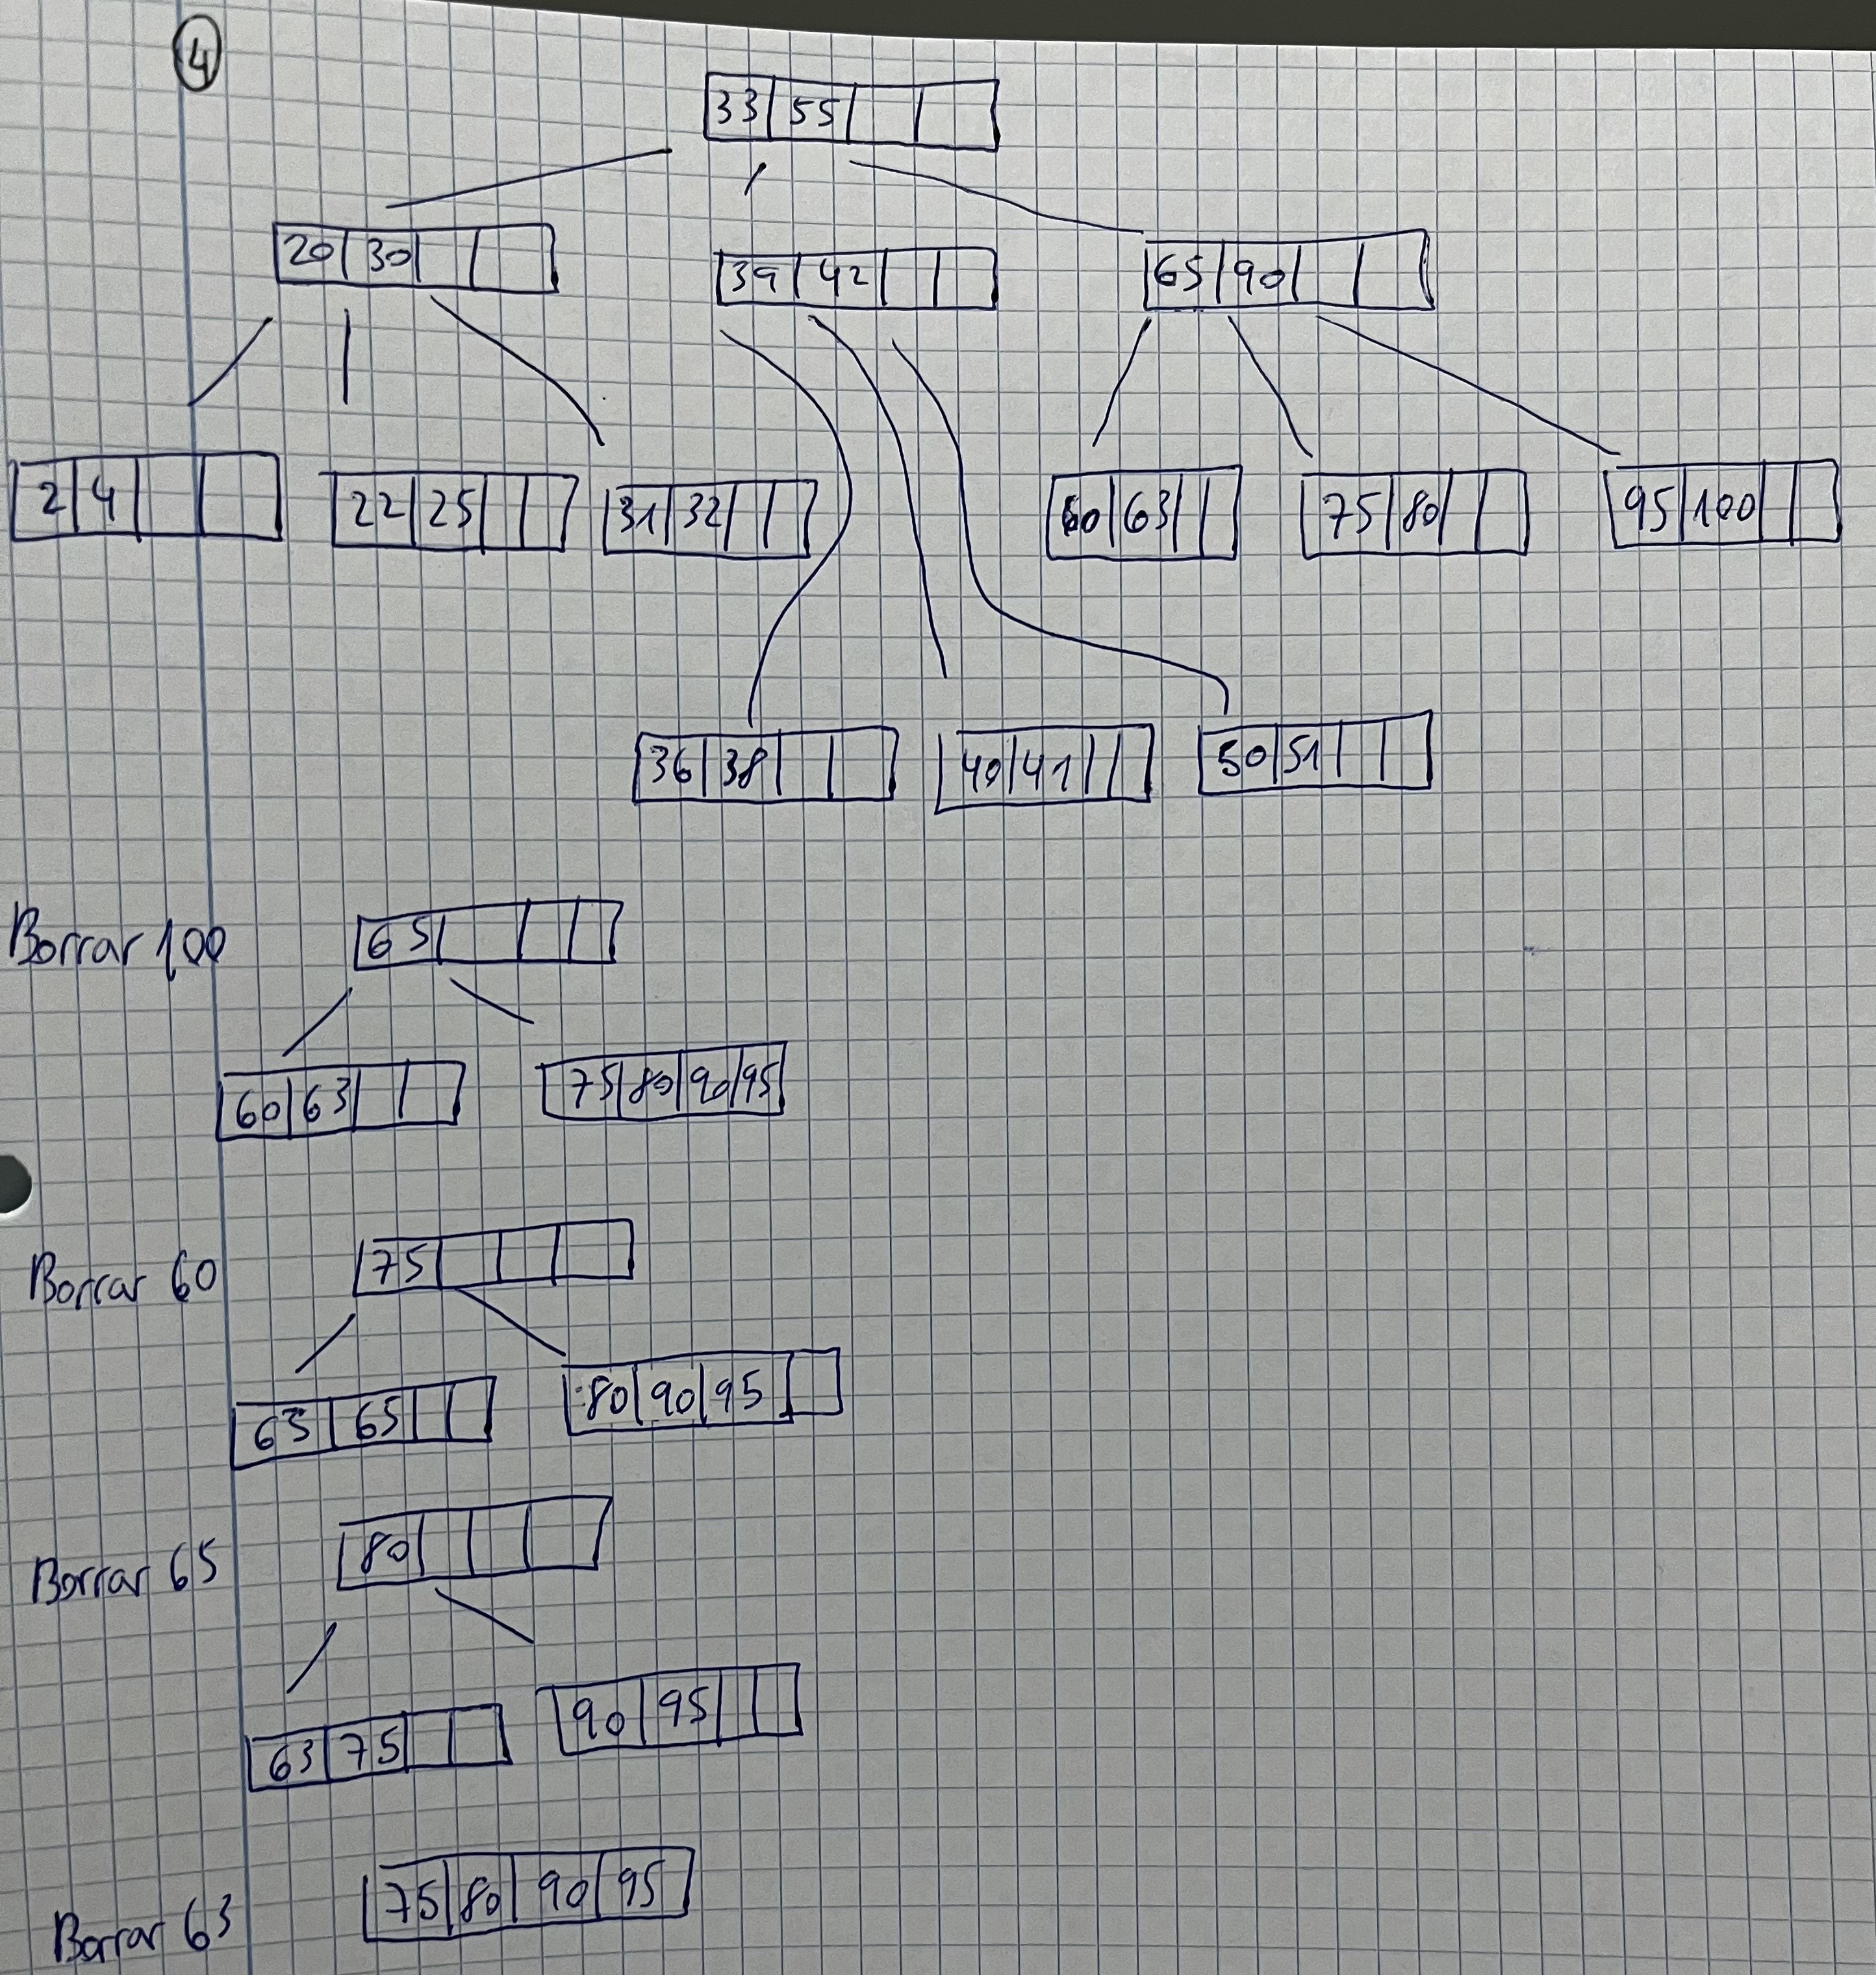 4
33 55
20 30
39 42
65 90
2 4
22 25
31 32
60 63
75 80
95 100
36 38
40 41
50 51
Borrar 100
65
60 63
75 80 90 95
Borrar 60
75
63 65
80 90 95
Borrar 65
80
63 75
90 95
Borrar 63
75 80 90 95